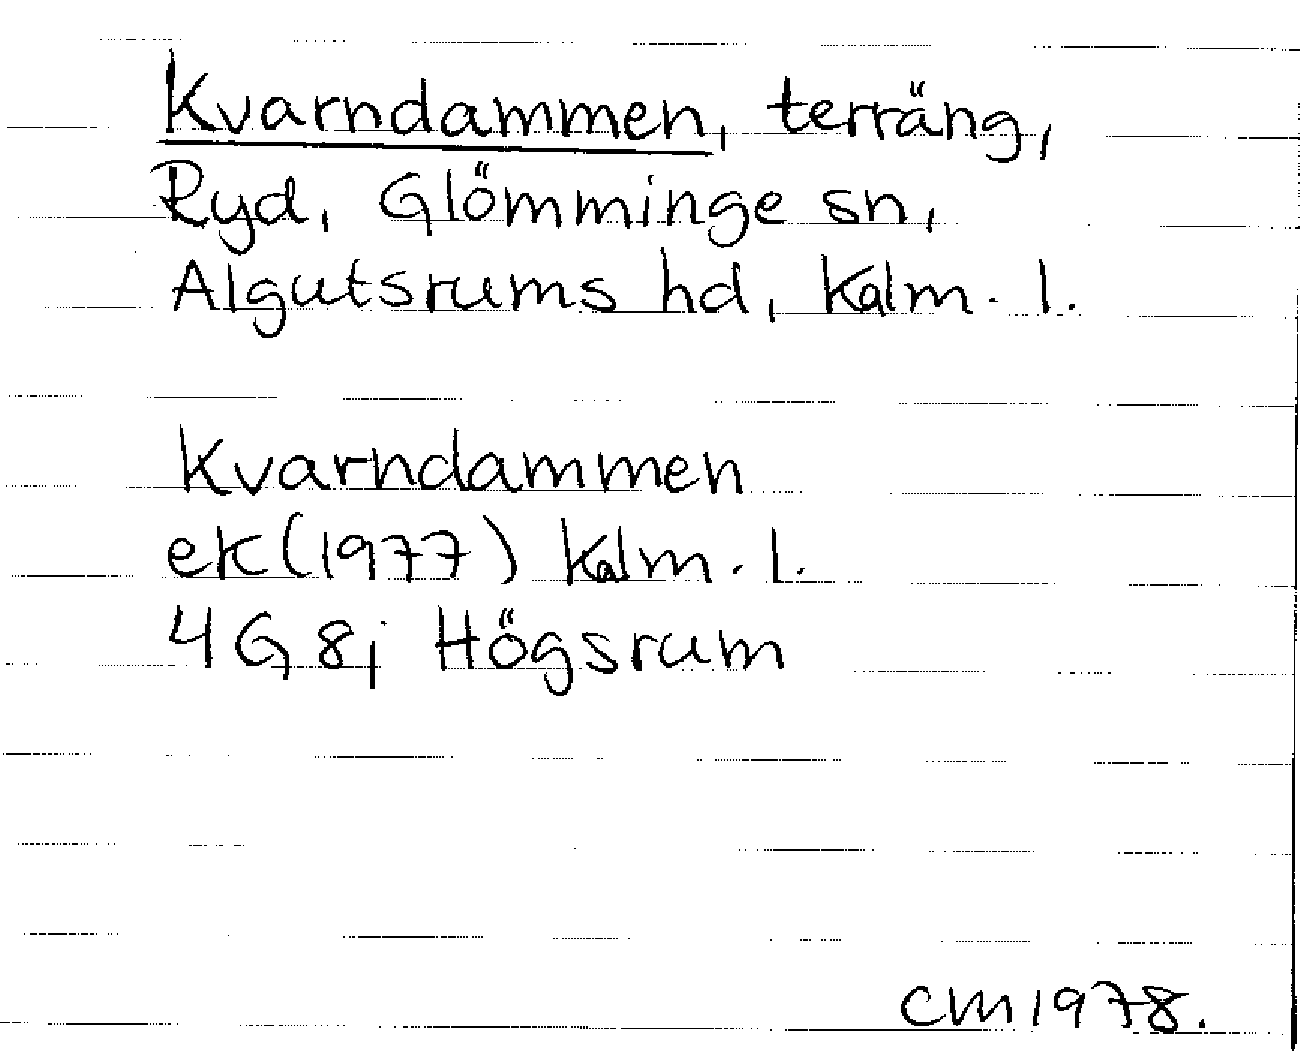 Kvarndammen, terräng,
Ryd, Glömminge sn,
Algutsrums hd, Kalm. l.
Kvarndammen
ek (1977) Kalm. l.
4G 8j Högsrum
CM 1978.